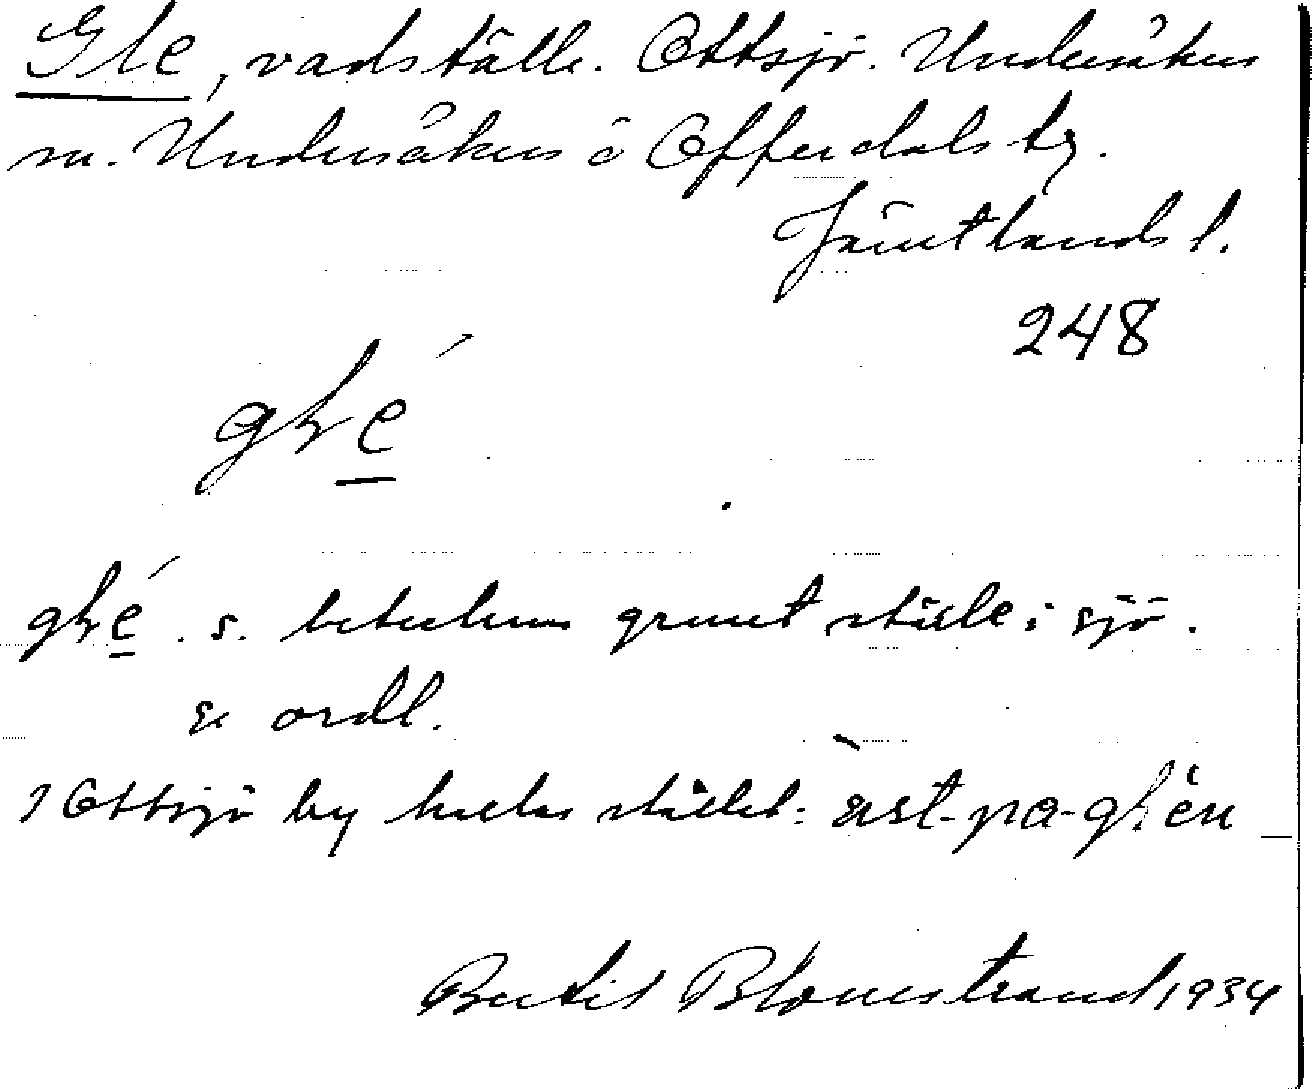 Gle, vadställe. Ottsjö. Undersåkers
sn. Undersåkers o Offerdals tg.
Jämtlands l.
248
glé
glé. s. betecknar grunt ställe i sjö.
se ordl.
I Ottsjö by kallas stället: àst-pa-glèn
Bertil Blomstrand 1934